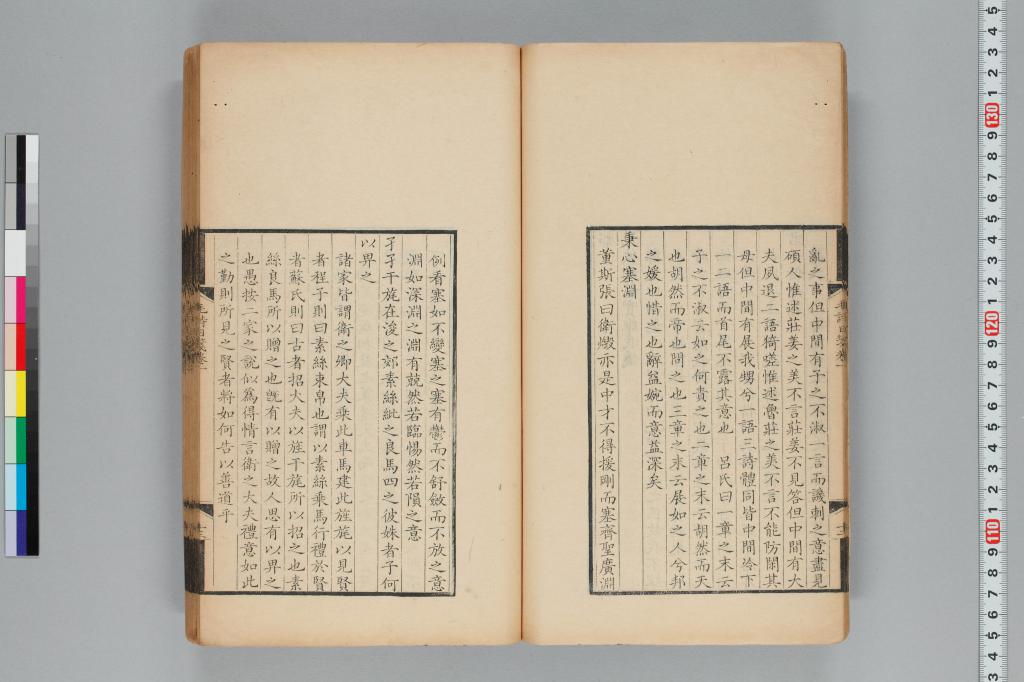 亂之事但中間有子之不淑一言而譏刺之意盡見
碩人惟述莊姜之美不言莊姜不見答但中間有大
夫夙退二語猗嗟惟述魯莊之美不言不能防閑其
母但中間有展我甥兮一語三詩體同皆中間冷下
一二語而首尾不露其意也 呂氏曰一章之末云
子之不淑云如之何責之也二章之末云胡然而天
也胡然而帝也問之也三章之末云展如之人兮邦
之媛也惜之也辭益婉而意益深矣
秉心塞淵
董斯張曰衛燬亦是中才不得援剛而塞齊聖廣淵
例看塞如不變塞之塞有鬱而不舒斂而不放之意
淵如深淵之淵有兢然若臨惕然若隕之意
孑孑干旄在浚之郊素絲紕之良馬四之彼姝者子何
以畀之
諸家皆謂衛之卿大夫乘此車馬建此旌旄以見賢
者程子則曰素絲束帛也謂以素絲乘馬行禮於賢
者蘇氏則曰古者招大夫以旌干旄所以招之也素
絲良馬所以贈之也旣有以贈之故人思有以畀之
也愚按二家之說似為得情言衛之大夫禮意如此
之勤則所見之賢者將如何告以善道乎
毛詩日箋卷一
十二
毛詩日箋卷一
十三
5
4
3
2
1
130
9
8
7
6
5
4
3
2
1
120
9
8
7
6
5
4
3
2
1
110
9
8
7
6
5
4
3